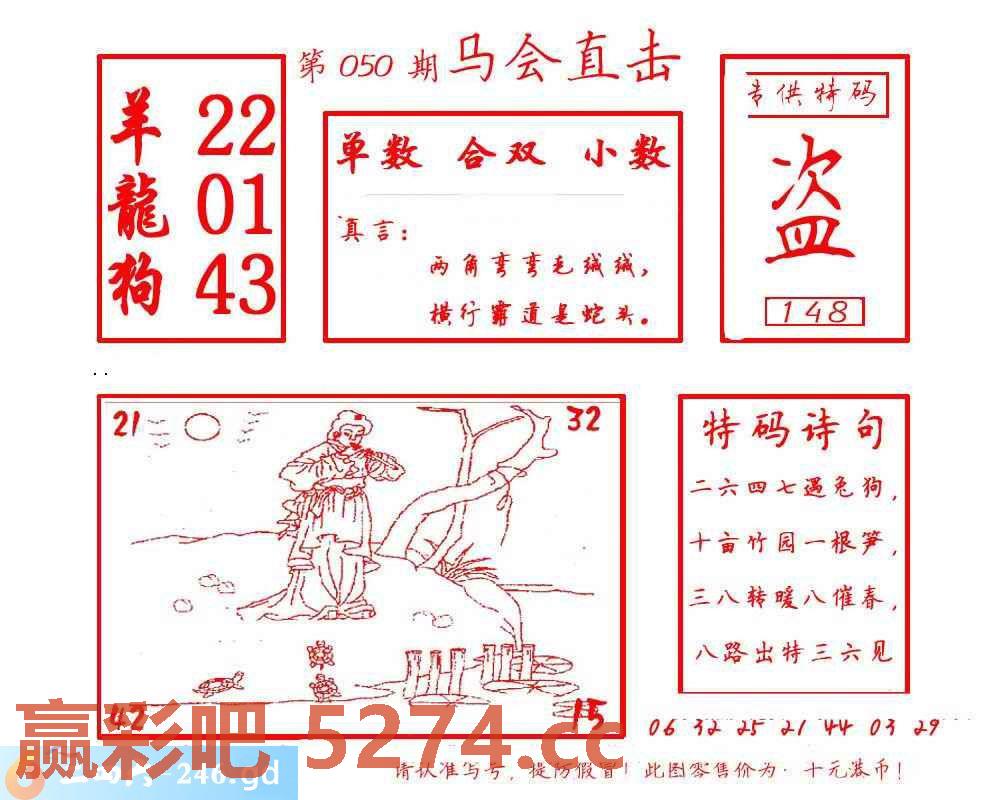 第 050 期 马会直击
羊 22
龍 01
狗 43
单数 合双 小数
真言：
两角弯弯毛绒绒，
横行霸道是蛇头。
专供特码
盗
148
21
32
42
15
特码诗句
二六四七遇兔狗，
十亩竹园一根笋，
三八转暖八催春，
八路出特三六见
06 32 25 21 44 03 29
赢彩吧 5274.cc
-246.gd
请认准写号，提防假冒！此图零售价为：十元港币！